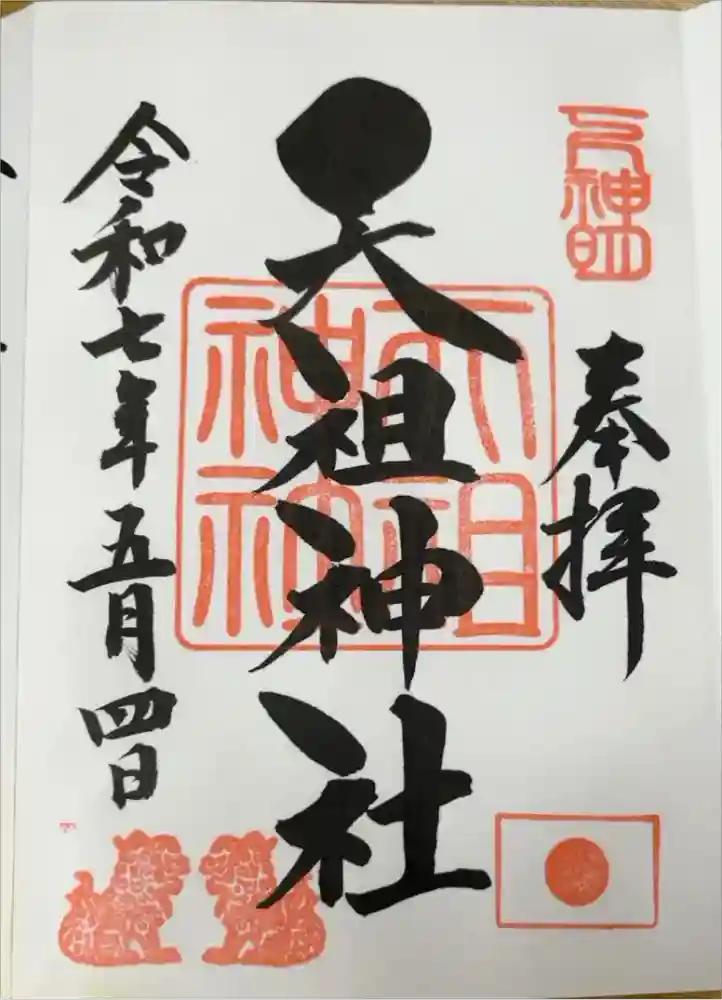 下神明
奉拝
天祖神社
天祖
神社
令和七年五月四日